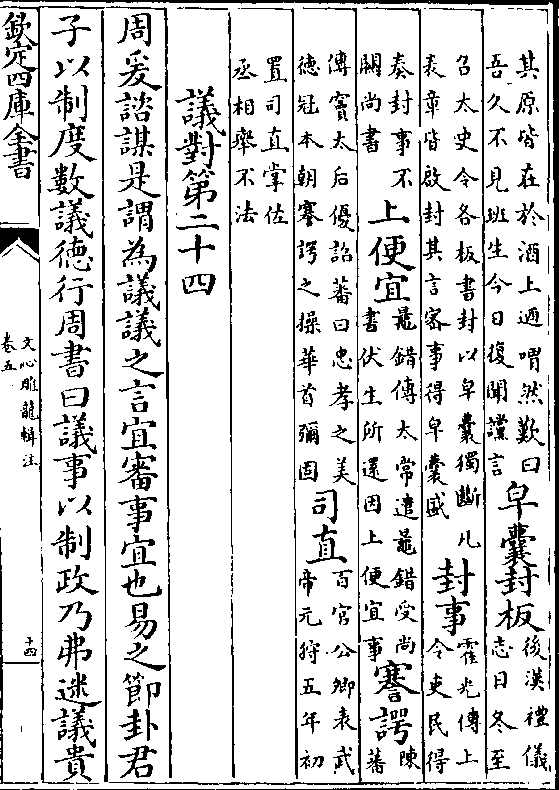 其原皆在於酒上廼喟然歎曰
吾久不見班生今日復聞讜言
皁囊封板
後漢禮儀
志日冬至
召太史令各板書封以皁囊獨斷凡
表章皆啟封其言宻事得皁囊盛
封事
霍光傳上
令吏民得
奏封事不
關尚書
上便宜
鼂錯傳太常遣鼂錯受尚
書伏生所還因上便宜事
謇諤
陳
蕃
傳竇太后優詔蕃曰忠孝之美
德冠本朝謇諤之操華首彌固
司直
百官公卿表武
帝元狩五年初
置司直掌佐
丞相舉不法
議對第二十四
周爰諮謀是謂為議議之言宜審事宜也易之節卦君
子以制度數議徳行周書曰議事以制政乃弗迷議貴
欽定四庫全書
文心雕龍輯注
卷五
十四